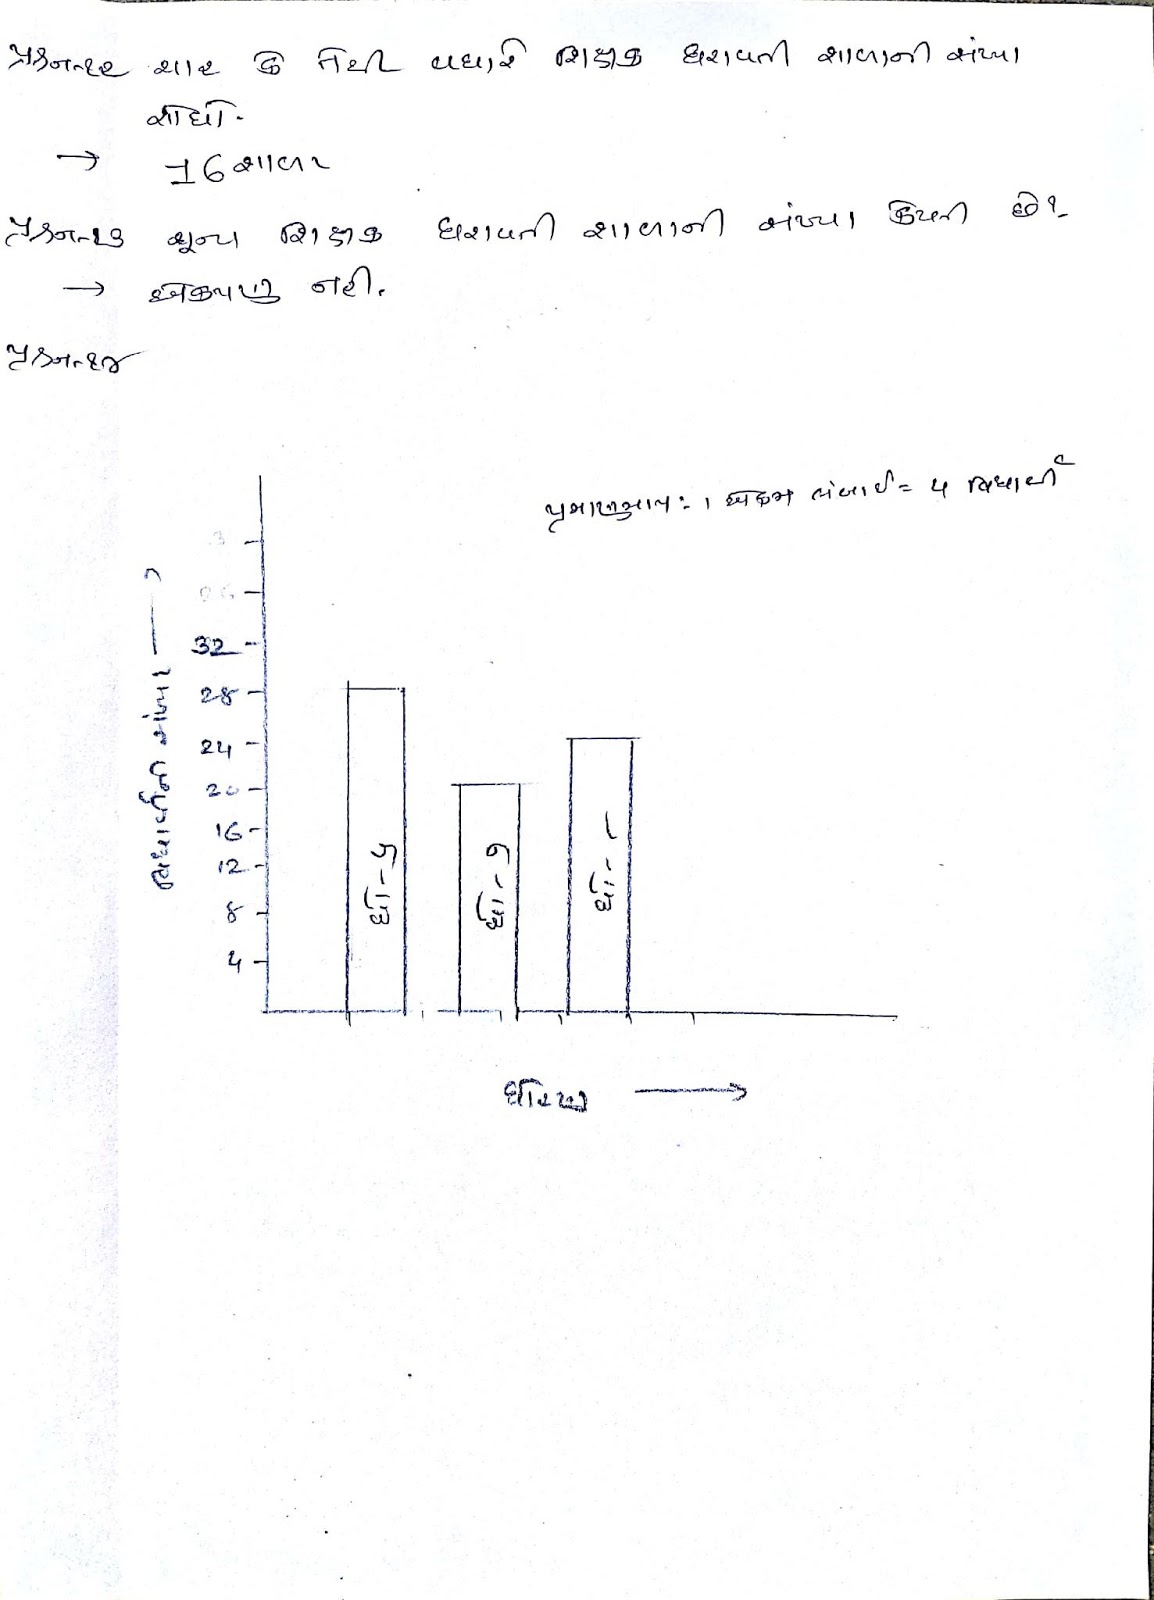 પ્રશ્ન-૨૨ ચાર કે તેથી વધારે શિક્ષક ધરાવતી શાળાની સંખ્યા
શોધો.
→ 16 શાળા
પ્રશ્ન-૨૩ શૂન્ય શિક્ષક ધરાવતી શાળાની સંખ્યા કેટલી છે?
→ એકપણ નહી.
પ્રશ્ન-૨૪
પ્રમાણમાપ: 1 એકમ લંબાઈ = ૫ વિદ્યાર્થી
વિદ્યાર્થીની સંખ્યા →
32
28
24
20
16
12
8
4
ધો-૫
ધો-
ધો-
ધોરણ →